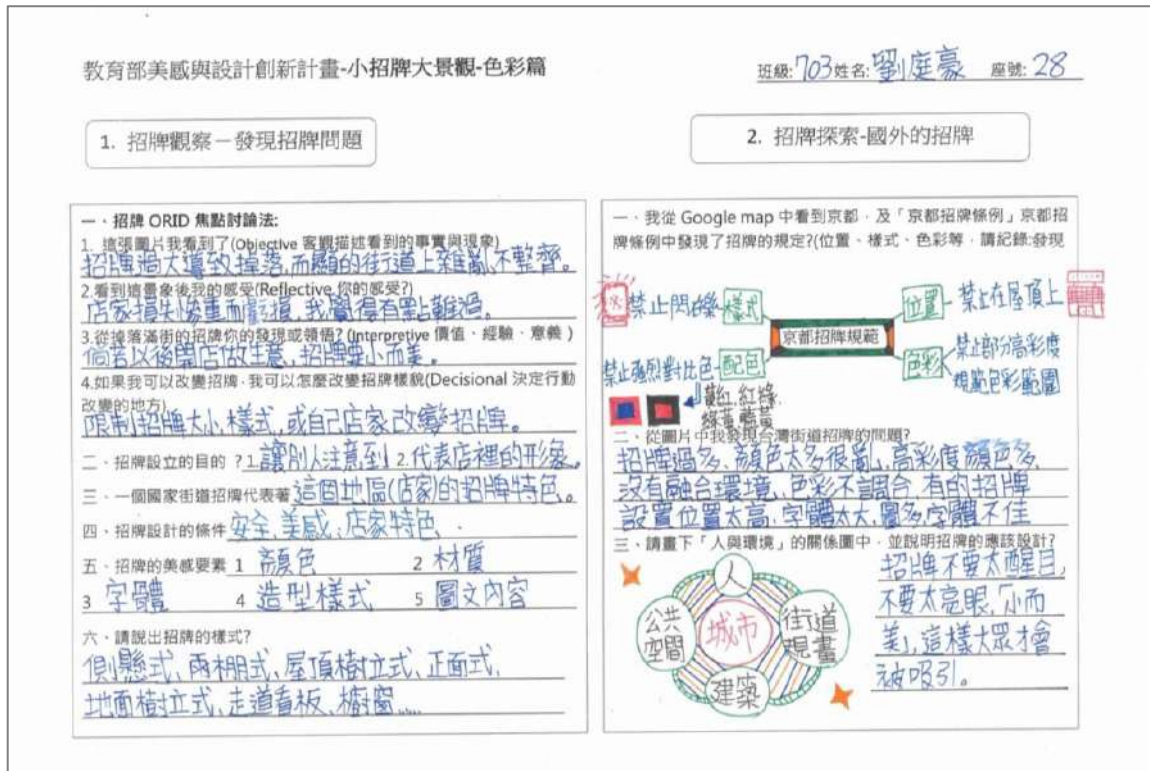 教育部美感與設計創新計畫-小招牌大景觀-色彩篇
班級:703姓名:劉庭豪 座號:28
1. 招牌觀察－發現招牌問題
一、招牌 ORID 焦點討論法:
1. 這張圖片我看到了(Objective 客觀描述看到的事實與現象)
招牌過大導致掉落,而顯的街道上雜亂、不整齊。
2.看到這景象後我的感受(Reflective 你的感受?)
店家損失慘重而虧損,我覺得有點難過。
3.從掉落滿街的招牌你的發現或領悟? (Interpretive 價值、經驗、意義)
倘若以後開店做生意,招牌要小而美。
4.如果我可以改變招牌,我可以怎麼改變招牌樣貌(Decisional 決定行動
改變的地方)
限制招牌大小、樣式,或自己店家改變招牌。
二、招牌設立的目的 ? 1.讓別人注意到 2.代表店裡的形象。
三、一個國家街道招牌代表著 這個地區(店家)的招牌特色。
四、招牌設計的條件 安全、美感、店家特色、
五、招牌的美感要素 1 顏色 2 材質
3 字體 4 造型樣式 5 圖文內容
六、請說出招牌的樣式?
側懸式、雨棚式、屋頂樹立式、正面式、
地面樹立式、走道看板、櫥窗.....
2. 招牌探索-國外的招牌
一、我從 Google map 中看到京都,及「京都招牌條例」京都招
牌條例中發現了招牌的規定?(位置、樣式、色彩等,請紀錄:發現
禁止閃爍 樣式 位置 禁止在屋頂上
京都招牌規範
禁止強烈對比色 配色 色彩 禁止部分高彩度
規範色彩範圍
黃紅.紅綠.
綠黃.藍黃
二、從圖片中我發現台灣街道招牌的問題?
招牌過多、顏色太多很亂、高彩度顏色多、
沒有融合環境、色彩不調合、有的招牌
設置位置太高、字體太大、圖多、字體不佳
三、請畫下「人與環境」的關係圖中,並說明招牌的應該設計?
人
公共
空間
城市
街道
規畫
建築
招牌不要太醒目,
不要太亮眼,「小而
美」,這樣大眾才會
被吸引。